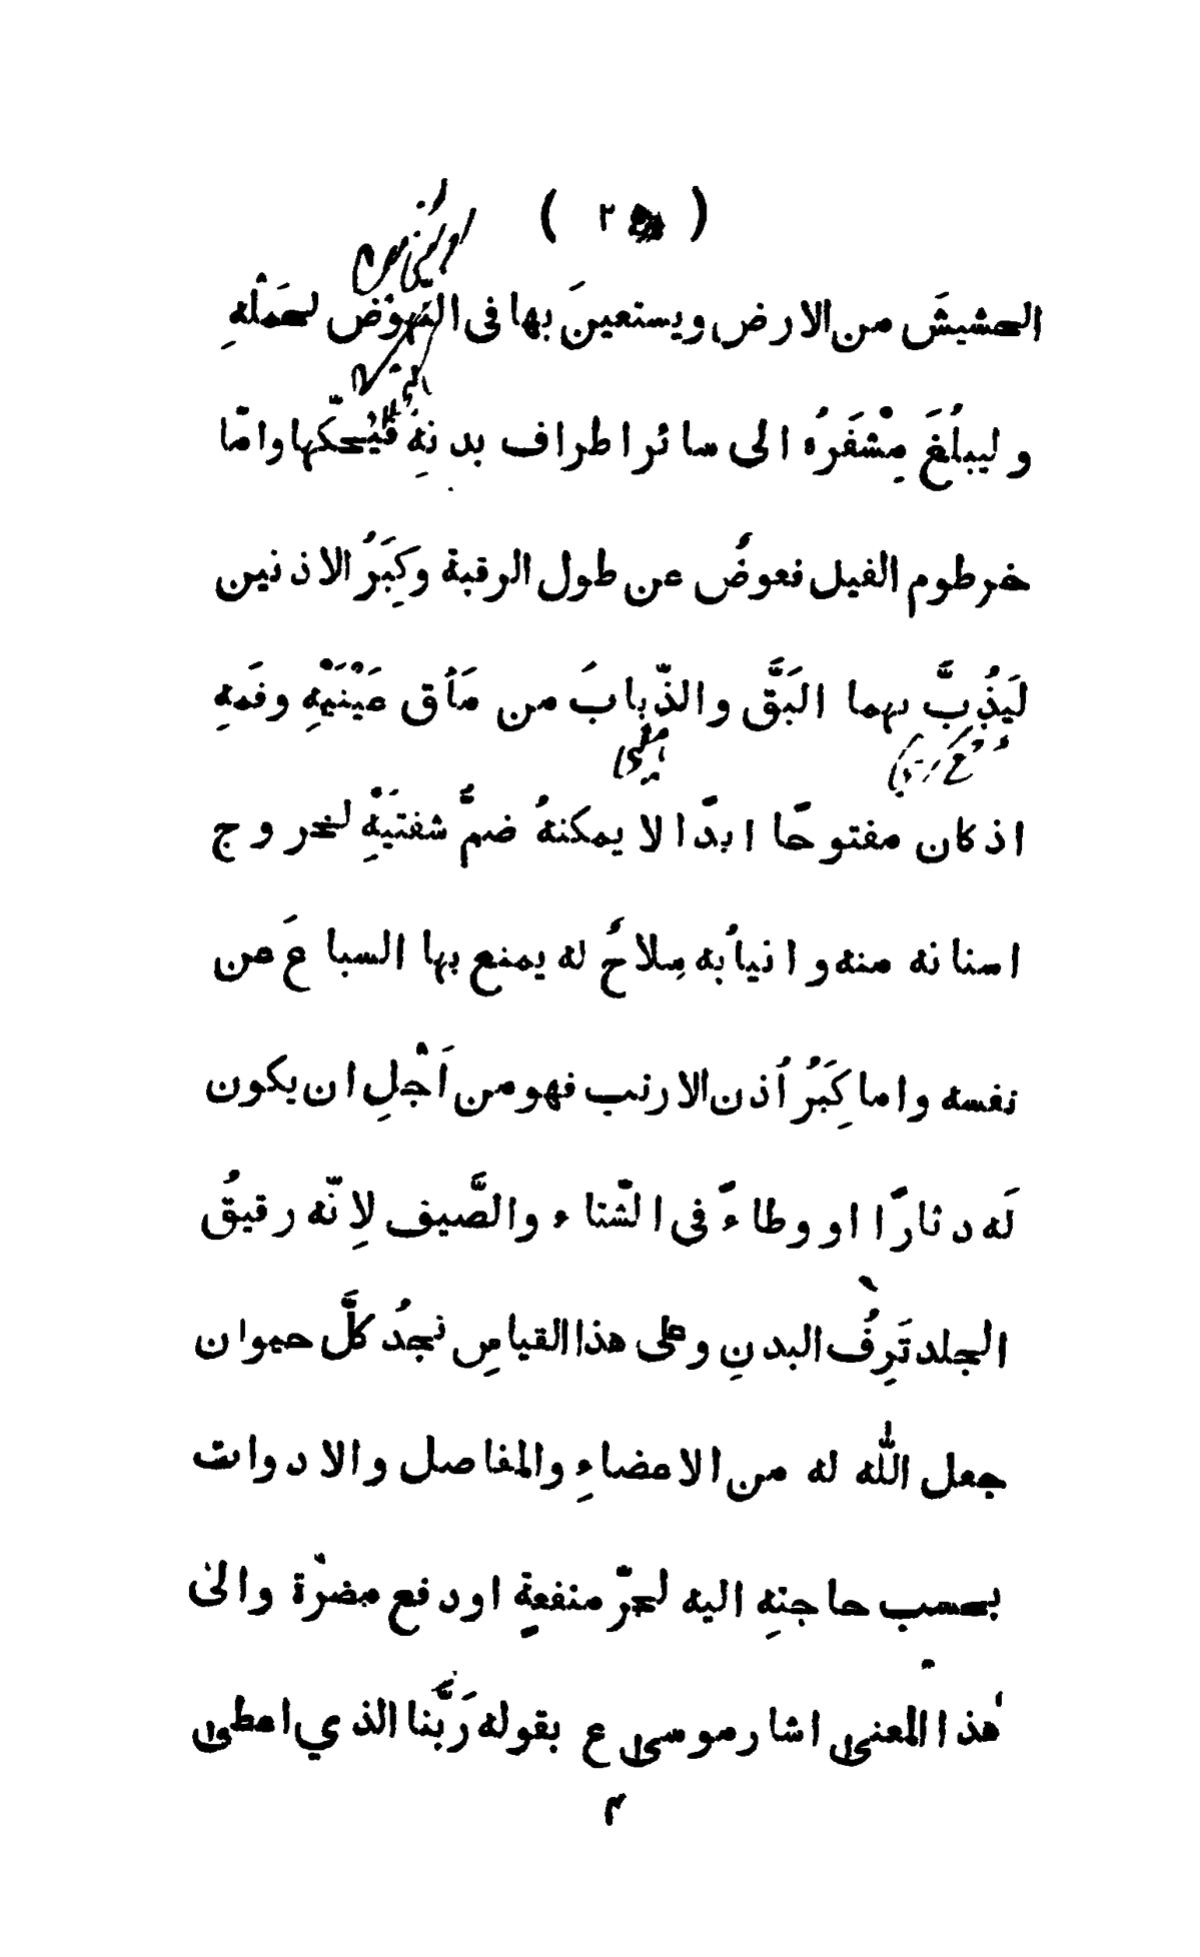 الحشيشَ من الارض ويستعينَ بها فى النهوْض لحَمْلهِ
و ليبلُغَ مِشْفَرُه الى سائر اطراف بدنهِ فيُحكّها وامّا
خرطوم الفيل فعوضُ عن طول الرقبة وكِبَرُ الاذنين
لَيَذُبَّ بهما البَقَّ والذّبابَ من مَأْق عَيْنَيْهِ وفَمهِ
اذ كان مفتوحًا ابدًا لا يمكنهُ ضمُّ شفتَيْهِ لخروج
اسنانه منه و انيابُه سِلاحُ له يمنع بها السباعَ عن
نفسه واما كِبَرُ اُذن الارنب فهو من اَجْلِ ان يكون
لَه دثارًا او وطاءً فى الشّتاء والصَّيف لِانّه رقيقُ
الجلد تَرِفُ البدنِ وعلى هذا القياسِ نجدُ كلَّ حيوان
جعل اللّٰه له من الاعضاءِ والمفاصل والادوات
بحسب حاجتِه اليه لجرّ منفعةٍ اودفع مضرّة والى
هٰذا المعنى اشار موسى ع بقوله رَبَّنا الذي اعطى